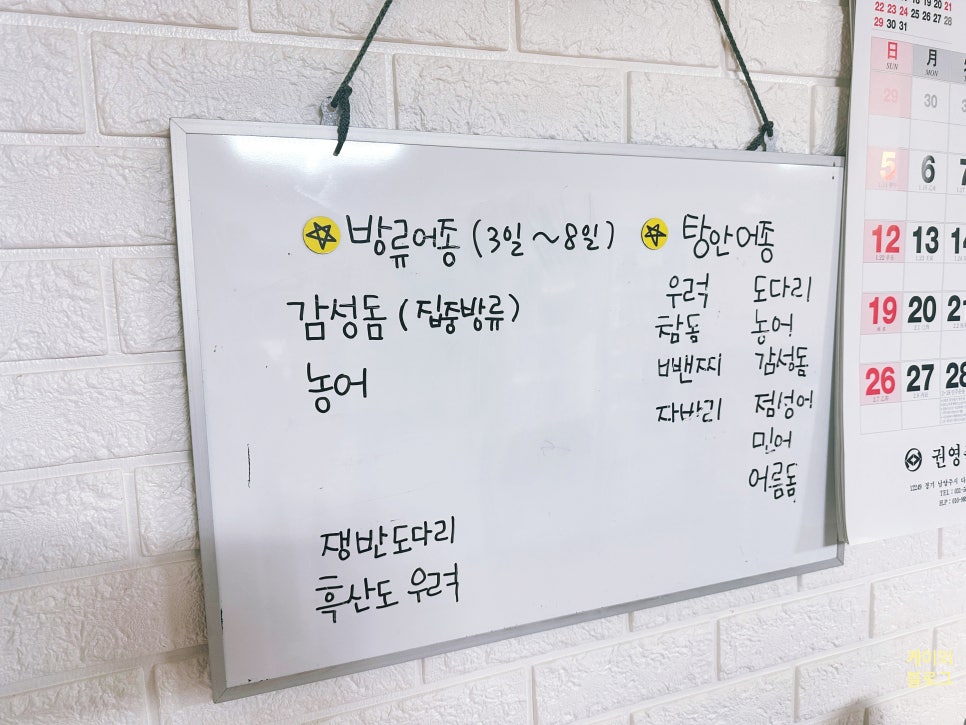 방류어종 (3일 ~ 8일)
감성돔 (집중방류)
농어
쟁반도다리
흑산도 우럭
탕안어종
우럭 도다리
참돔 농어
빠밴찌 감성돔
자바리 점성어
민어
어름돔
22 23 24 25 26 27 28
29 30 31
日 月
SUN MON
29 30
5 6 7
12 13 14
19 20 21
26 27 28
권영
케이의
블로그